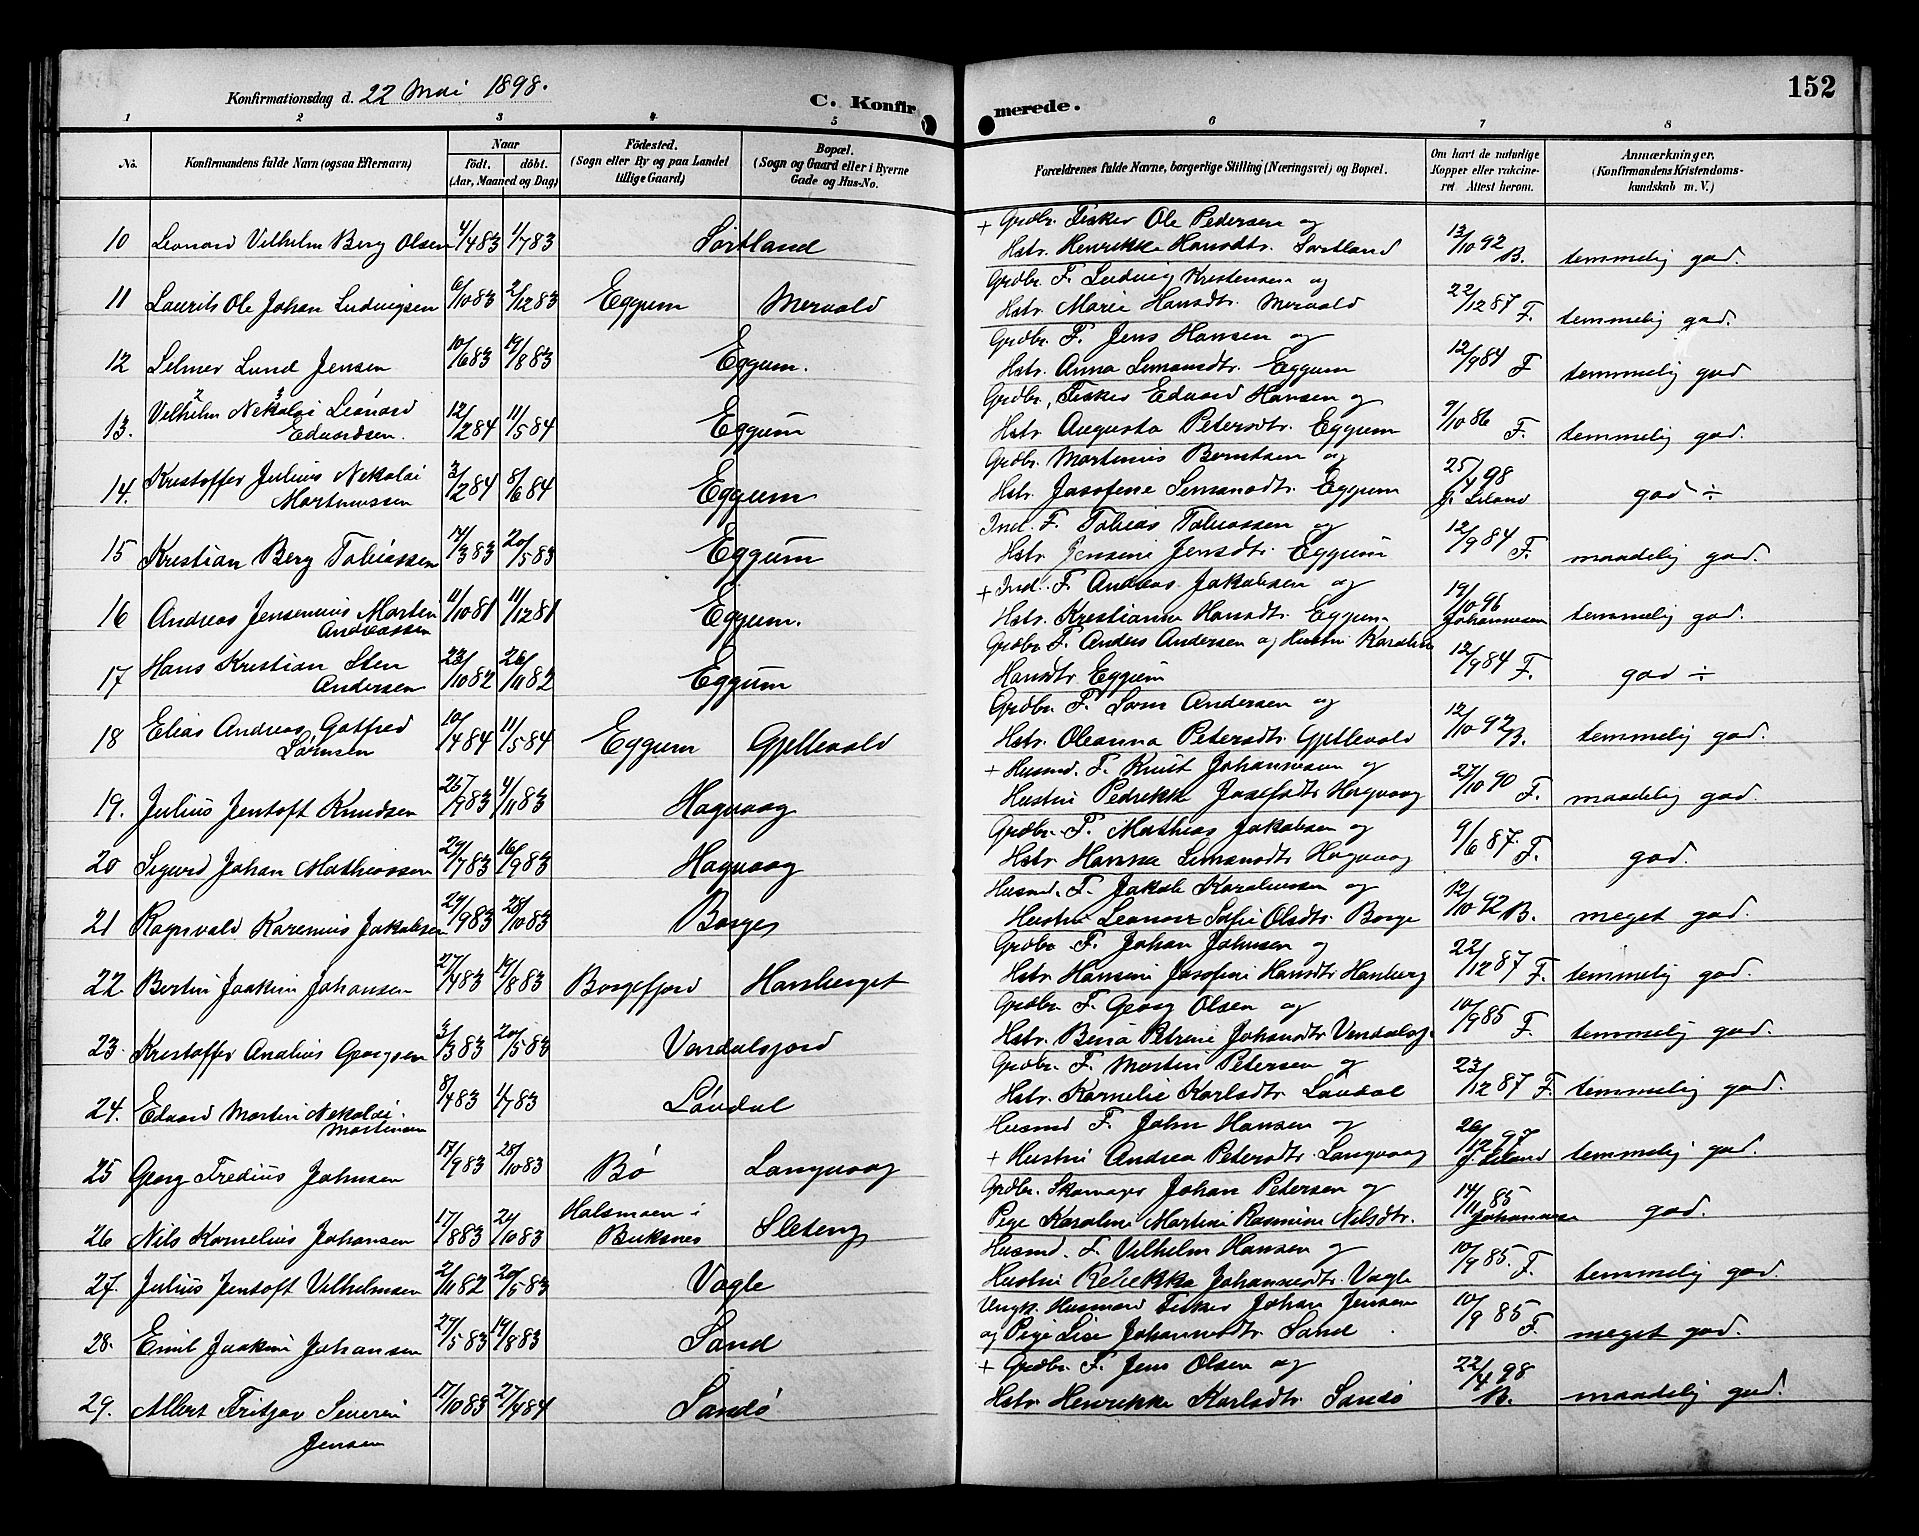 152
Konfirmationsdag d. 22 Mai 1898.
C. Konfir
merede.
1 2 3 4 5 6 7 8
No. Konfirmandens fulde Navn (ogsaa Efternavn) Naar födt. döbt. (Aar, Maaned og Dag) Födested. (Sogn eller By og paa Landet tillige Gaard) Bopæl. (Sogn og Gaard eller i Byerne Gade og Hus-No. Forældrenes fulde Navne, borgerlige Stilling (Næringsvei) og Bopæl. Om havt de naturlige Kopper eller vakcineret. Attest herom. Anmærkninger. (Konfirmandens Kristendomskundskab m. V.)
+ Grdbr. Fisker Ole Pedersen og
10 Leonard Vilhelm Berg Olsen 4/4 83 1/7 83 Sortland Hstr. Henrikke Hansdtr. Sortland 13/10 92 B. temmelig god.
Grdbr. F. Ludvig Kristensen og
11 Laurits Ole Johan Ludvigsen 6/10 83 2/12 83 Eggum Mervold Hstr. Marie Hansdtr. Mervold 22/12 87 F. temmelig god.
Grdbr. F. Jens Hansen og
12 Selmer Lund Jensen 10/6 83 19/8 83 Eggum. Hstr. Anna Simonsdtr. Eggum 12/9 84 F temmelig god
Vilhelm Nikolai Leonard Grdbr. Fisker Edvard Hansen og
13. Edvardsen. 12/2 84 11/5 84 Eggum Hstr. Augusta Petersdtr. Eggum 9/10 86 F. temmelig god.
Kristoffer Julius Nikolai Grdbr. Martinus Berntsen og
14. Martinussen 3/2 84 8/6 84 Eggum Hstr. Josefine Simonsdtr. Eggum 25/4 98 god ÷
Ind. F. Tobias Tobiassen og
15 Kristian Berg Tobiassen 14/3 83 20/5 83 Eggum Hstr. Jensine Jensdtr. Eggum 12/9 84 F. maadelig god.
+ Ind. F. Andreas Jakobsen og
16 Andreas Jensenius Martin Andreassen 11/10 81 11/12 81 Eggum. Hstr. Kristianna Hansdtr. Eggum 19/10 96 Johannesen temmelig god.
Hans Kristian Sten Grdbr. F. Anders Andersen og Hustru Karoline
17 Andersen 23/10 82 26/11 82 Eggum Hansdtr. Eggum 12/9 84 F. god ÷
Elias Andreas Gotfred Grdbr. F. Sørn Andersen og
18 Sørnsen 10/4 84 11/5 84 Eggum Gjellevold Hstr. Oleanna Petersdtr. Gjellevold 12/10 92 B. temmelig god.
+ Husmd. F. Knut Johannesen og
19. Julius Jentoft Knudsen 26/9 83 4/11 83 Hagvaag Hustru Pedrikke Josefsdtr. Hagvaag 27/10 90 F. maadelig god.
Grdbr. F. Mathias Jakobsen og
20 Sigurd Johan Mathiassen 29/7 83 16/9 83 Hagvaag Hstr. Hanna Simonsdtr. Hagvaag 9/6 87. F. god.
Husmd. F. Jakob Karoliussen og
21 Ragnvald Karenius Jakobsen 24/9 83 28/10 83 Borge Hustru Leonore Sofie Olsdtr. Borge 12/10 92 B. meget god.
Grdbr. F. Johan Johnsen og
22. Bertin Joakim Johansen 27/4 83 19/8 83 Borgefjord Hansberget Hstr. Hansine Josefine Hansdtr. Hanberg 22/12 87 F. temmelig god.
Grdbr. F. Georg Olsen og
23. Kristoffer Analius Georgsen 3/3 83 20/5 83 Vendalsfjord Hstr. Beria Petrine Johansdtr. Vendalsfj. 10/9 85 F. temmelig god.
Grdbr. F. Morten Petersen og
24. Edvard Martin Nikolai Mortensen 8/4 83 1/7 83 Løvdal Hstr. Kornelie Karlsdtr. Løvdal 23/12 87 F. temmelig god.
Husmd F. John Hansen og
25 Georg Fredius Johnsen 17/9 83 28/10 83 Bø Langvaag + Hustru Andrea Petersdtr. Langvaag 26/12 97 temmelig god.
Grdbr. Skomager Johan Petersen og
26 Nils Kornelius Johansen 17/8 83 21/10 83 Halsmoen i Buksnes Sleteng Pige Karoline Martine Rasmine Nilsdtr. 14/11 85 Johannesen god.
Husmd. F. Vilhelm Hansen og
27. Julius Jentoft Vilhelmsen 2/11 82 20/5 83 Vagle Hustru Rebekka Johannesdtr. Vagle 10/9 85. F. temmelig god.
Ungk. Husmand Fisker Johan Jensen
28. Emil Joakim Johansen 27/5 83 19/8 83 Sand og Pige Lise Johannesdtr. Sand. 10/9 85 F. meget god.
+ Grdbr. F. Jens Olsen og
29. Albert Fritjov Severin Jensen 17/10 83 27/4 84 Sandø Hstr. Henrikke Karlsdtr. Sandø 22/4 98 B. maadelig god.